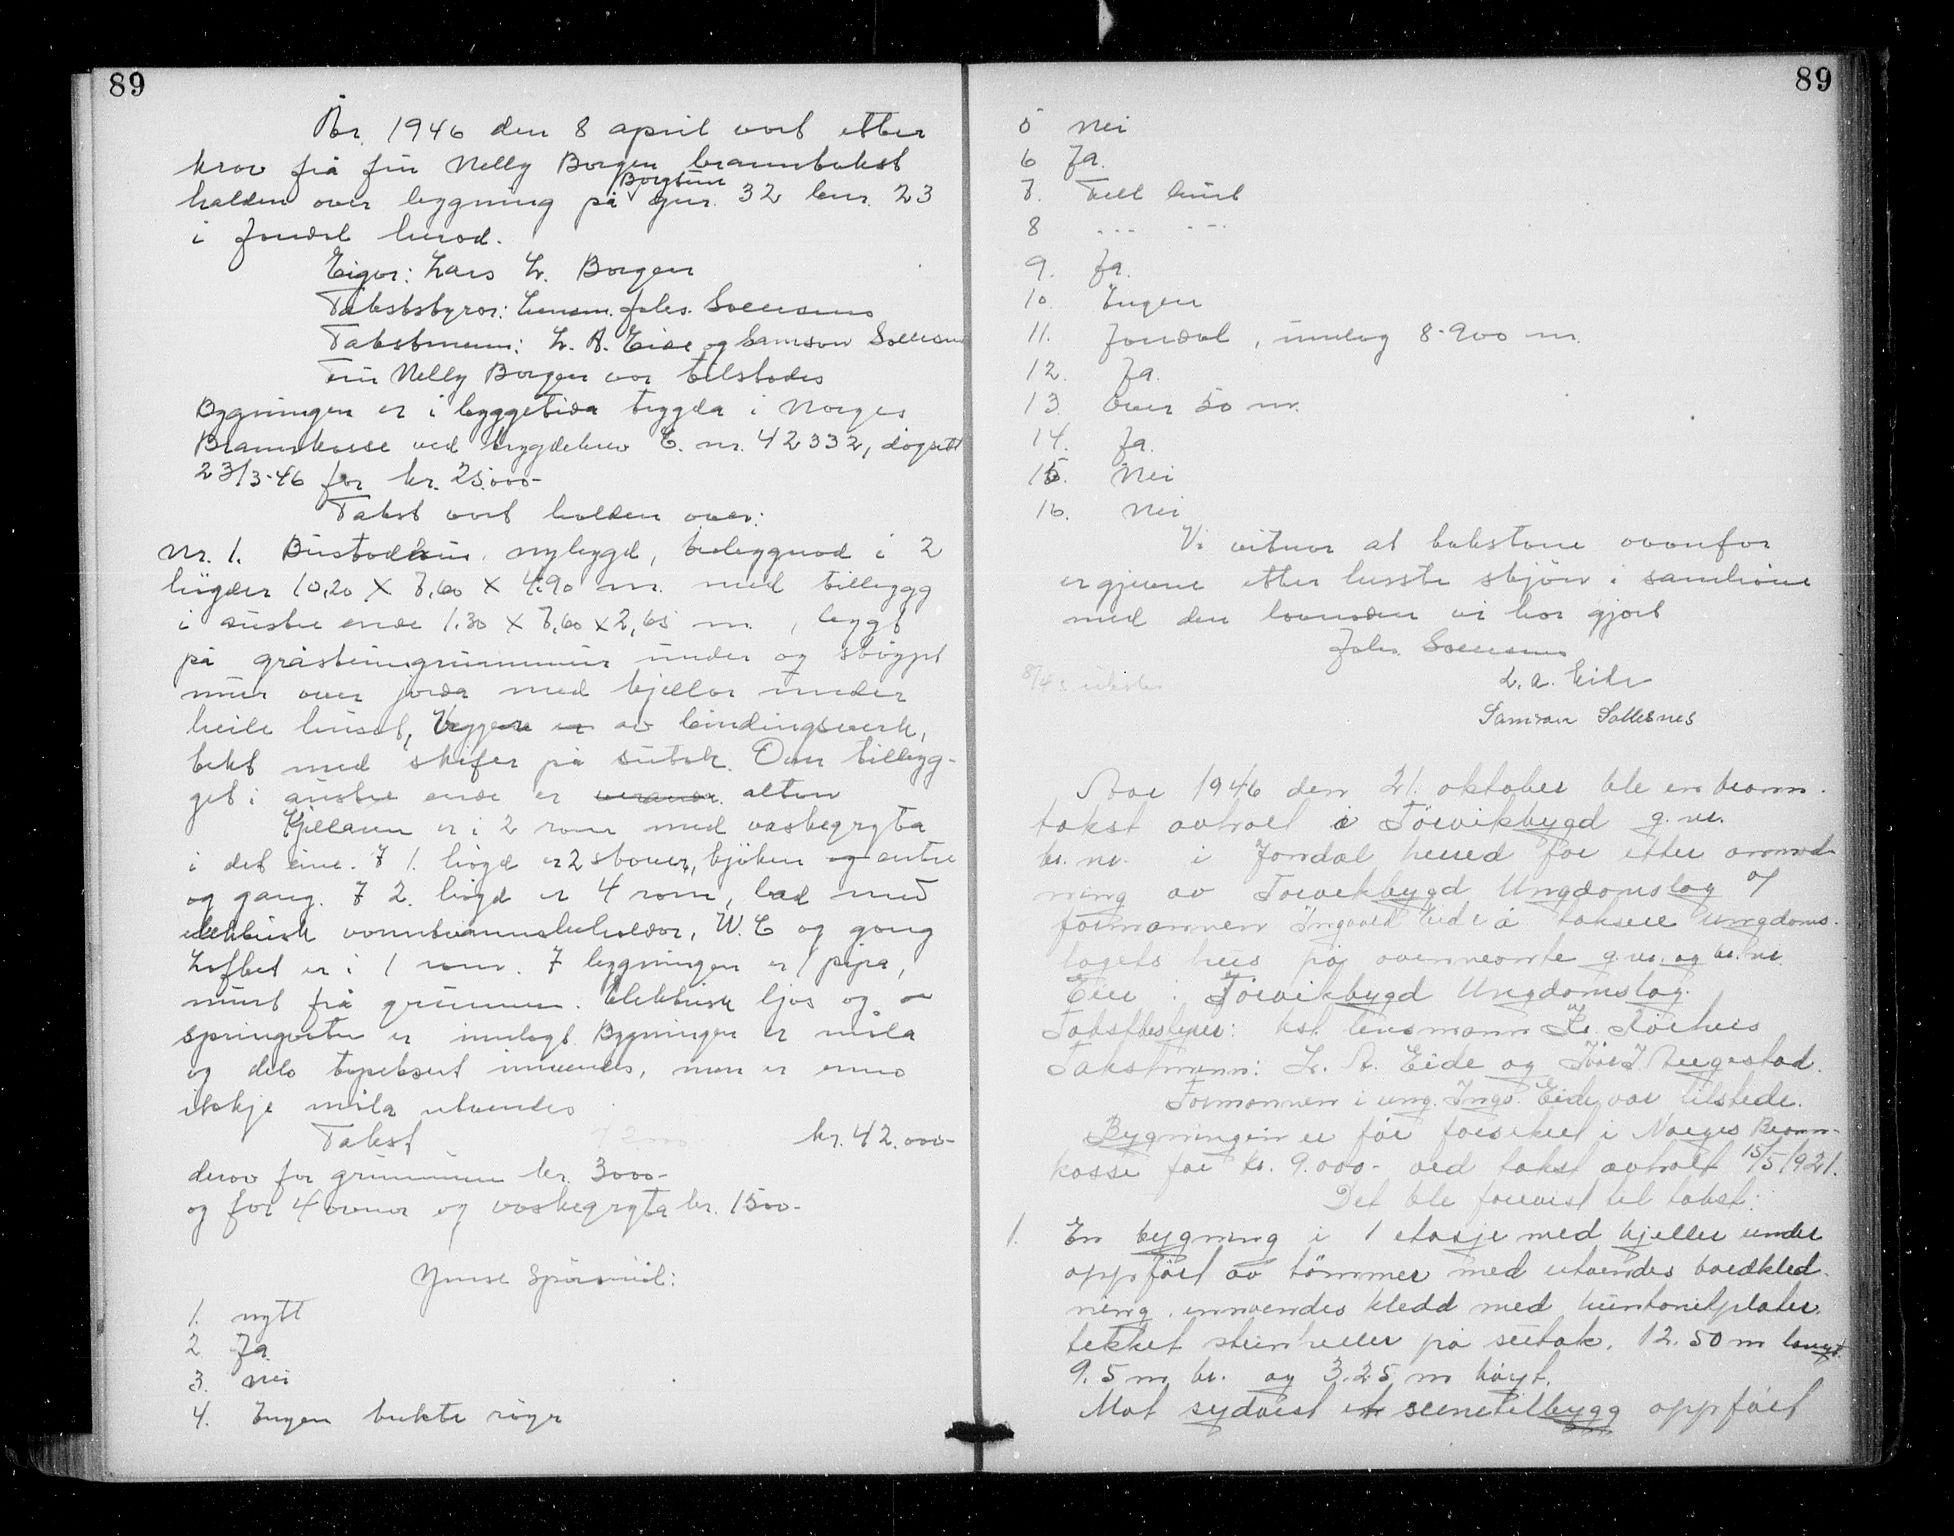 89
År 1946 den 8 april vort etter
krav frå fru Nelly Borgen branntakst
Borgtun
halden over bygning på gnr. 32 bnr. 23
i Jondal herad.
Eigar: Lars L. Borgen
Takststyrar: Lensm. Johs. Sollesnes
Takstmenn: L. A. Eide og Samson Sollesnes
Fru Nelly Borgen var tilstades
Bygningen er i byggetida trygda i Norges
Brannkasse ved trygdebrev C. nr. 42332, dagsett
23/3-46 for kr. 25.000-
Takst vort halden over:
Nr. 1. Bustadhus, nybygd, tvibygnad i 2
høgder 10,20 X 7,60 X 4,90 m. med tilbygg
i austre ende 1.30 X 7,60 X 2,65 m, bygt
på gråsteingrunnmur under og støypt
mur over jorda med kjellar under
heile huset, Veggene er av bindingsverk,
tekt med skifer på sutak. Over tilbyg-
get i austre ende er veranda. altan
Kjellaren er i 2 rom med vaskegryta
i det eine. I 1. høgd er 2 stover, kjøken og entre
og gang. I 2. høgd er 4 rom, bad med
elektrisk varmtvannsbehaldar, W.C og gang
Loftet er i 1 rom. I bygningen er 1 pipa,
murt frå grunnen. Elektrisk ljos og
springvatn er innlagt. Bygningen er måla
og dels tapetsert innvendes, men er enno
ikkje måla utvendes
Takst kr. 42.000-
derav for grunnmur kr. 3000-
og for 4 ovnar og vaskegryta kr. 1500-
Ymse spørsmål:
1. nytt
2 Ja
3. Nei
4. Ingen brukte røyr
89
5 Nei
6 Ja.
7. Fullt burt
8 --- ---
9. Ja.
10. Ingen
11. Jondal, umlag 8-900 m.
12. Ja.
13. Over 50 m.
14. Ja.
15. Nei
16. Nei
Vi vitnar at takstane ovanfor
er gjevne etter beste skjøn i samhøve
med den lovnaden vi har gjort
Johs. Sollesnes
L. A. Eide
Samson Sollesnes
Aar 1946 den 21. oktober ble en brann-
takst avholt i Torvikbygd g.nr.
br.nr. i Jondal herred for etter anmod-
ning av Torvikbygd Ungdomslag v/
formannen Ingvald Eide å taksere ungdoms-
lagets hus på ovennevnte g.nr. og br.nr
Eier: Torvikbygd Ungdomslag.
Takstbestyrer: kst. lensmann
Takstmenn: L. A. Eide og
Formannen i ung. Ingv. Eide var tilstede.
Bygningen er før forsikret i Norges Brann-
kasse for kr. 9.000- ved takst avholt 15/5 1921.
Det ble forevist til takst:
1. En bygning i 1 etasje med kjeller under
oppført av tømmer med utvendes bordkled-
ning innvendes kledd med huntonitplater.
tekket steinheller på sutak, 12.50 m langt.
9.5 m br. og 3.25 m høyt.
Mot sydvest et scenetilbygg oppført